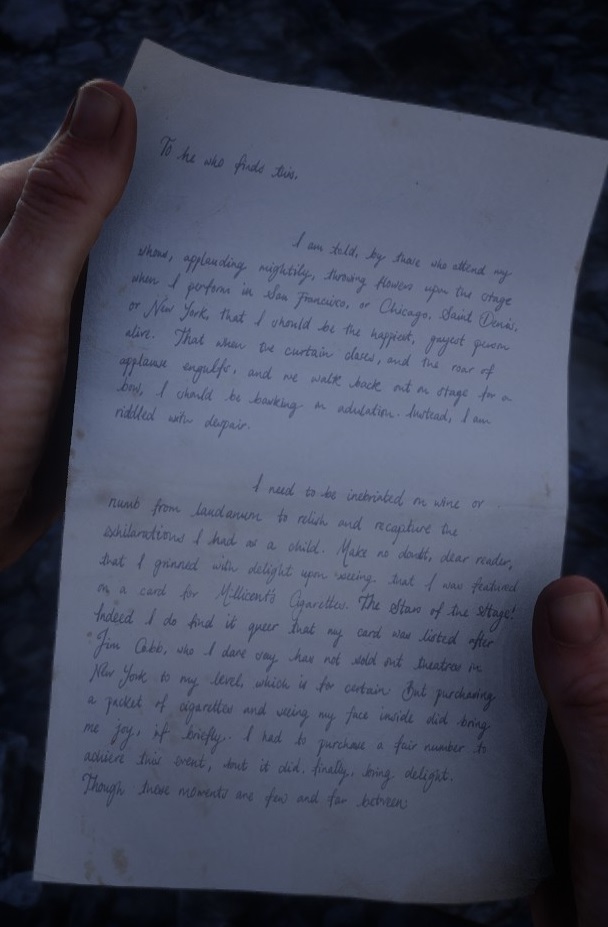 To he who finds this,
I am told, by those who attend my
shows, applauding mightily, throwing flowers upon the stage
when I perform in San Francisco, or Chicago, Saint Denis,
or New York, that I should be the happiest, gayest person
alive. That when the curtain closes, and the roar of
applause engulfs, and we walk back out on stage for a
bow, I should be basking in adulation. Instead, I am
riddled with despair.
I need to be inebriated on wine or
numb from laudanum to relish and recapture the
exhilarations I had as a child. Make no doubt, dear reader,
that I grinned with delight upon seeing that I was featured
on a card for Millicent's Cigarettes. The Stars of the Stage!
Indeed I do find it queer that my card was listed after
Jim Cabb, who I dare say, has not sold out theatres in
New York to my level, which is for certain. But purchasing
a packet of cigarettes and seeing my face inside did bring
me joy, if briefly. I had to purchase a fair number to
achieve this event, but it did, finally, bring delight.
Though these moments are few and far between